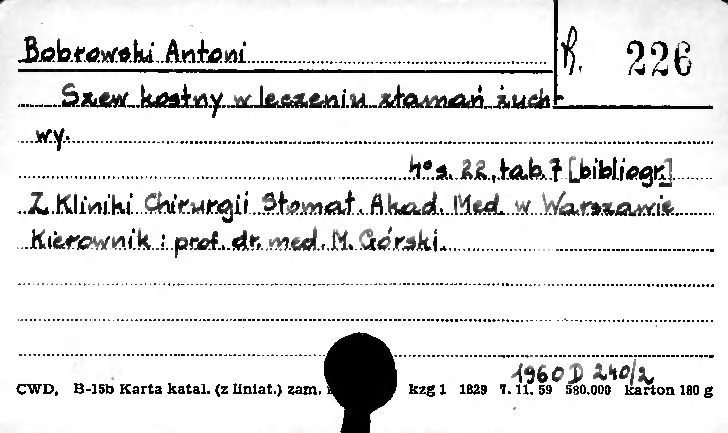 Bobrowski Antoni
R. 226
Szew kostny w leczeniu złamań żuch-
wy.
4° s. 22, tab. 7 [bibliogr.]
Z Kliniki Chirurgii Stomat. Akad. Med. w Warszawie
Kierownik : prof. dr. med. M. Górski.
1960 D 240/2
CWD, B-15b Karta katal. (z liniat.) zam. kzg 1 1829 7. 11. 59 580.000 karton 180 g